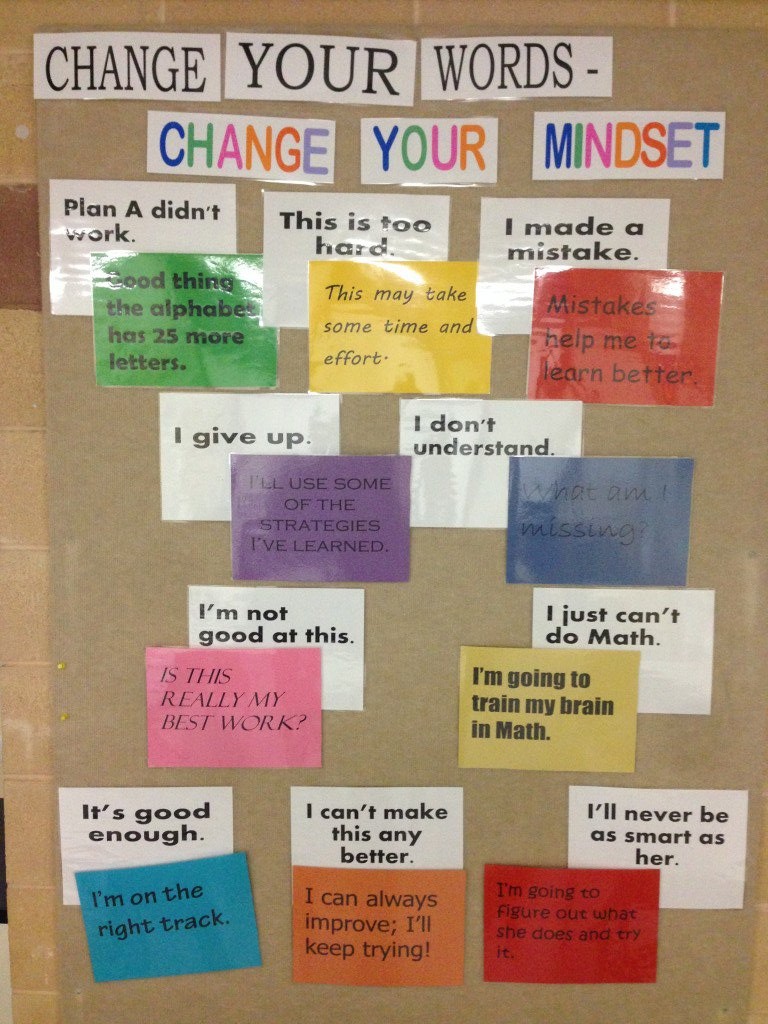 CHANGE YOUR WORDS -
CHANGE YOUR MINDSET
Plan A didn't
work.
Good thing
the alphabet
has 25 more
letters.
This is too
hard.
This may take
some time and
effort.
I made a
mistake.
Mistakes
help me to
learn better.
I give up.
I'LL USE SOME
OF THE
STRATEGIES
I'VE LEARNED.
I don't
understand.
What am I
missing?
I'm not
good at this.
IS THIS
REALLY MY
BEST WORK?
I just can't
do Math.
I'm going to
train my brain
in Math.
It's good
enough.
I'm on the
right track.
I can't make
this any
better.
I can always
improve; I'll
keep trying!
I'll never be
as smart as
her.
I'm going to
figure out what
she does and try
it.